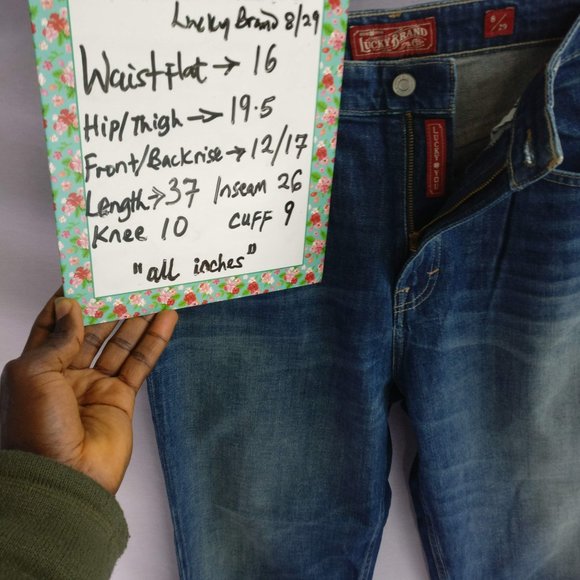 Lucky Brand 8/29
Waist flat → 16
Hip/Thigh → 19.5
Front/Backrise → 12/17
Length → 37 Inseam 26
Knee 10 CUFF 9
"all inches"
LUCKY BRAND
8/29
LUCKY YOU